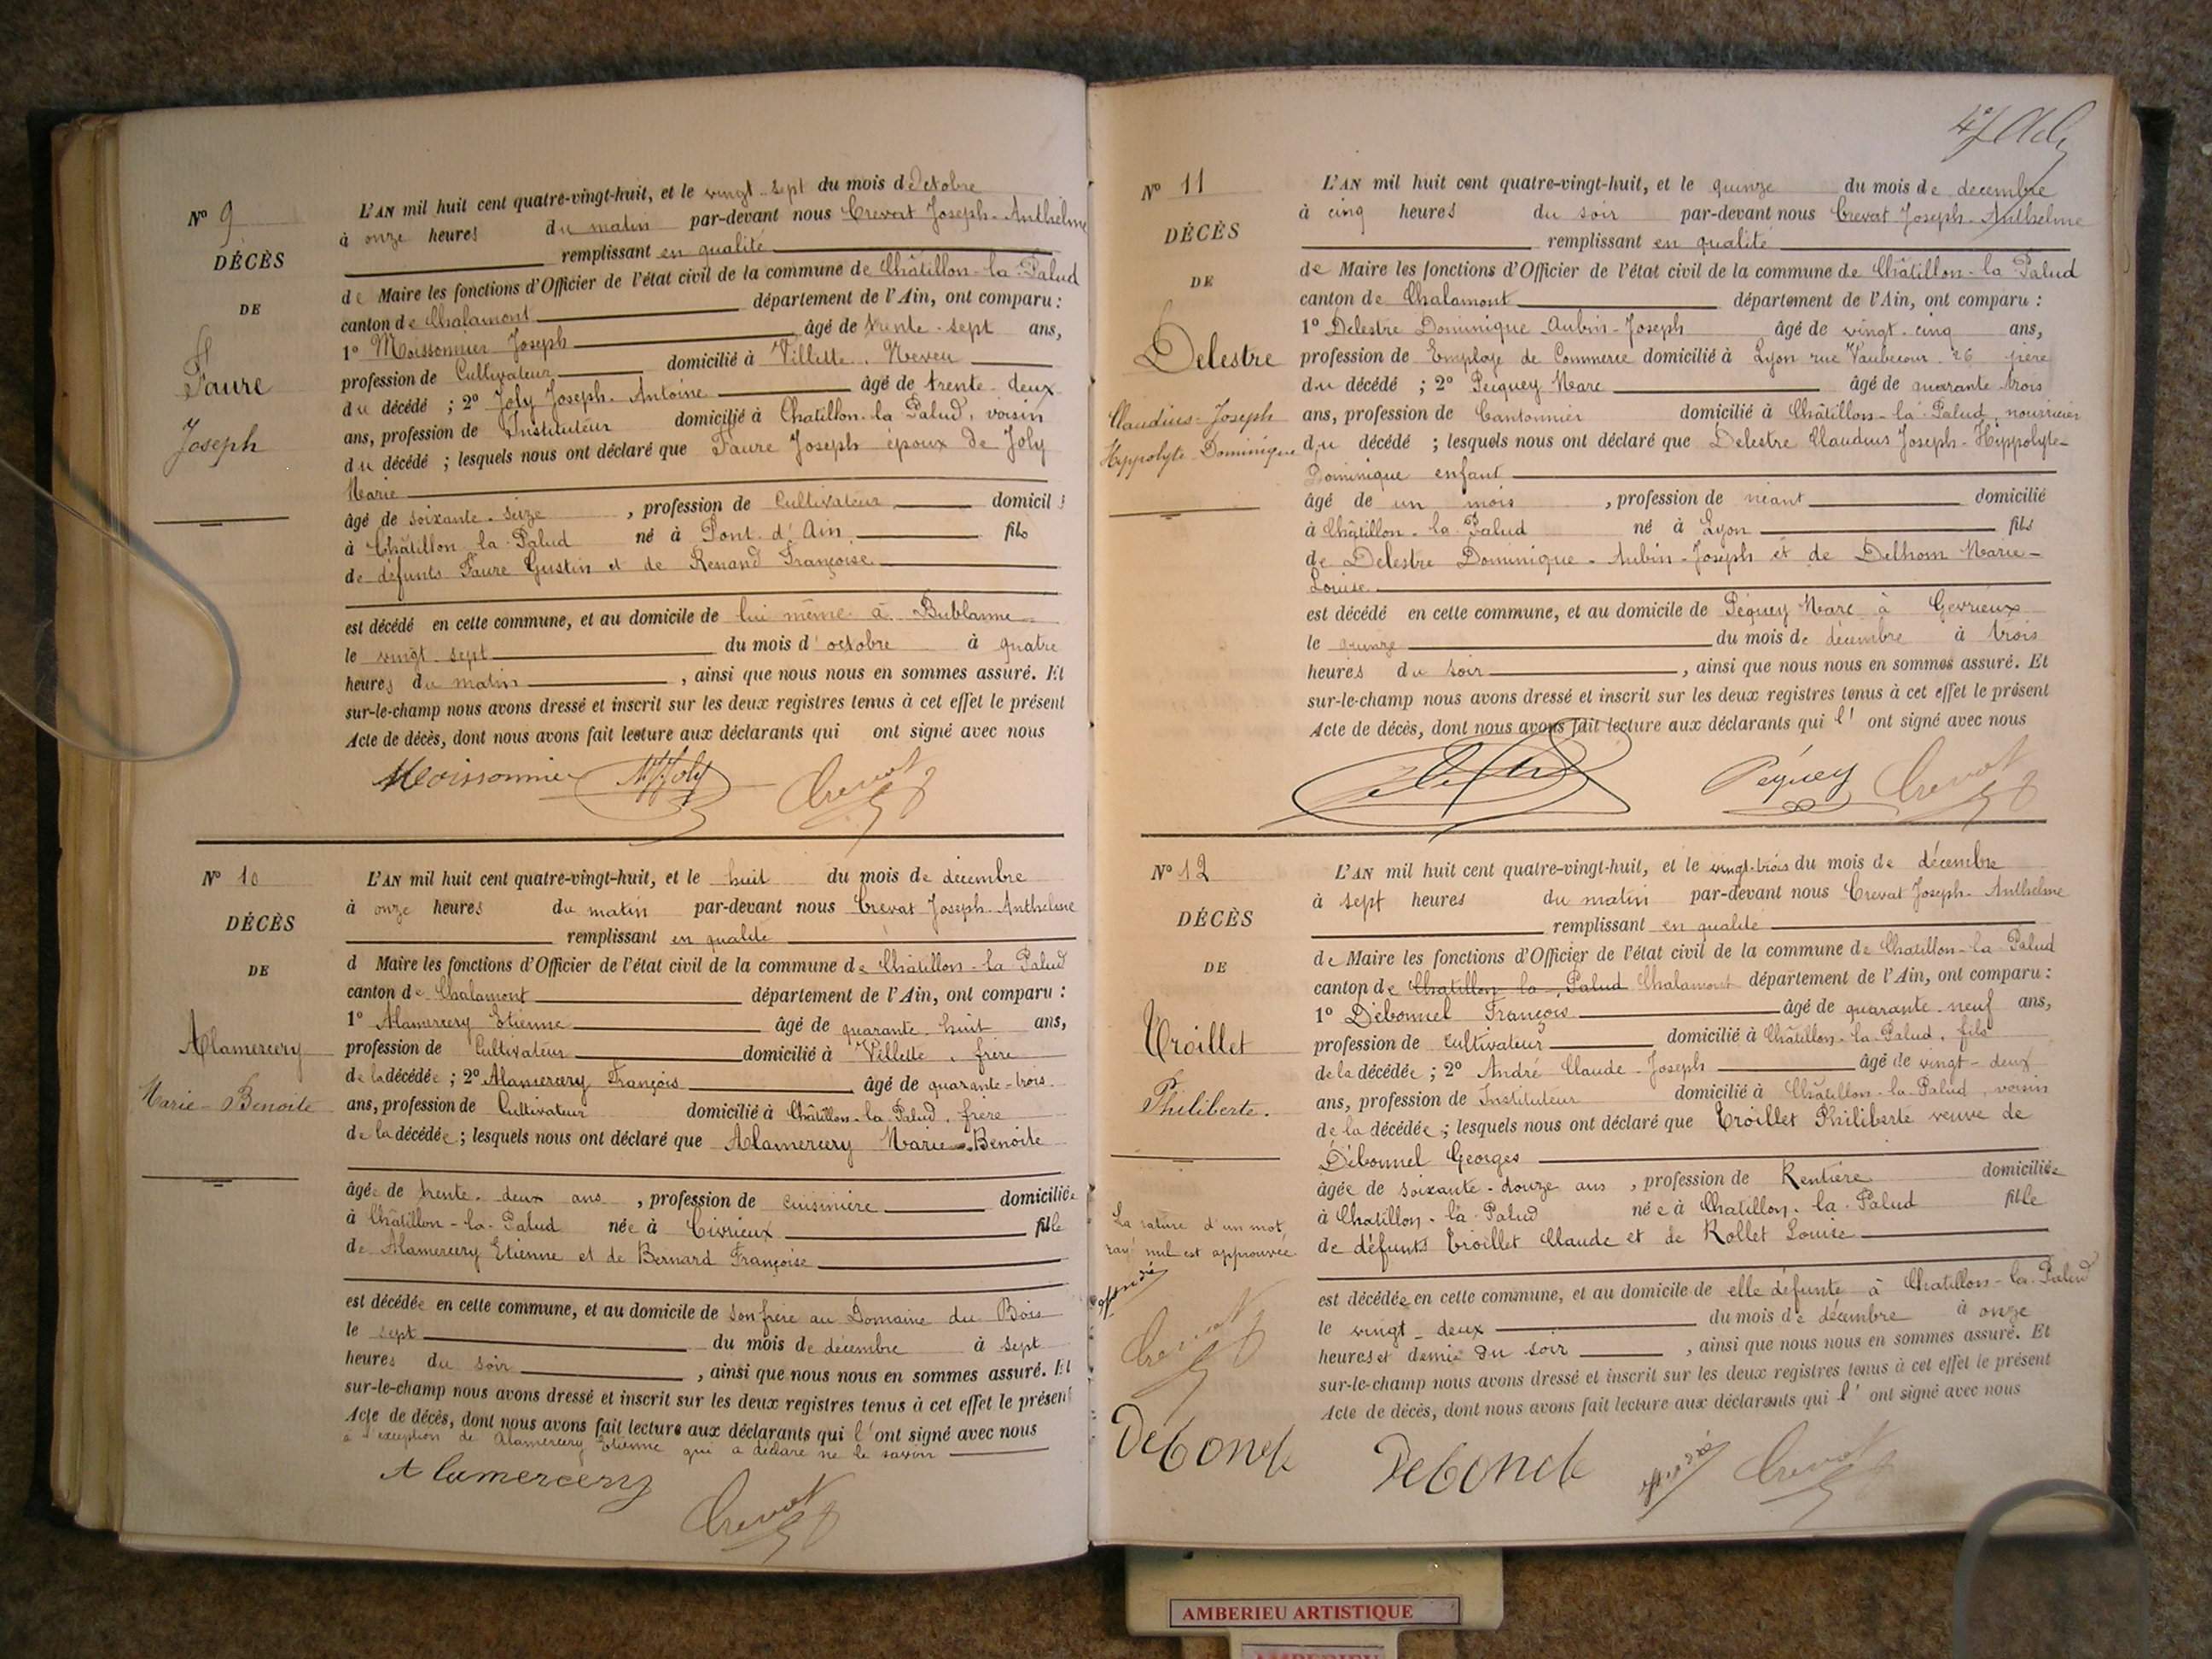 N° 9
DÉCÈS
DE
Faure
Joseph
L'AN mil huit cent quatre-vingt-huit, et le vingt-sept du mois d'Octobre
à onze heures du matin par-devant nous Crevat Joseph-Anthelme
remplissant en qualité
de Maire les fonctions d'Officier de l'état civil de la commune de Châtillon-la-Palud
canton de Chalamont département de l'Ain, ont comparu :
1° Moissonnier Joseph âgé de trente-sept ans,
profession de Cultivateur domicilié à Villette. Neveu
du décédé ; 2° Joly Joseph-Antoine âgé de trente-deux
ans, profession de Instituteur domicilié à Chatillon-la-Palud, voisin
du décédé ; lesquels nous ont déclaré que Faure Joseph époux de Joly
Marie
âgé de soixante-seize , profession de Cultivateur domicilié
à Châtillon-la-Palud né à Pont-d'Ain fils
de défunts Faure Gustin et de Renand Françoise
est décédé en cette commune, et au domicile de lui même à Bublanne
le vingt-sept du mois d'octobre à quatre
heures du matin , ainsi que nous nous en sommes assuré. Et
sur-le-champ nous avons dressé et inscrit sur les deux registres tenus à cet effet le présent
Acte de décès, dont nous avons fait lecture aux déclarants qui ont signé avec nous
Moissonnier Joly Crevat
N° 10
DÉCÈS
DE
Alamercery
Marie-Benoite
L'AN mil huit cent quatre-vingt-huit, et le huit du mois de décembre
à onze heures du matin par-devant nous Crevat Joseph-Anthelme
remplissant en qualité
d Maire les fonctions d'Officier de l'état civil de la commune de Châtillon-la-Palud
canton de Chalamont département de l'Ain, ont comparu :
1° Alamercery Etienne âgé de quarante-huit ans,
profession de Cultivateur domicilié à Villette, frère
de la décédée ; 2° Alamercery François âgé de quarante-trois
ans, profession de Cultivateur domicilié à Châtillon-la-Palud, frère
de la décédée ; lesquels nous ont déclaré que Alamercery Marie-Benoite
âgée de trente-deux ans , profession de cuisinière domiciliée
à Châtillon-la-Palud née à Civrieux fille
de Alamercery Etienne et de Bernard Françoise
est décédée en cette commune, et au domicile de son frère au Domaine du Bois
le sept du mois de décembre à sept
heures du soir , ainsi que nous nous en sommes assuré. Et
sur-le-champ nous avons dressé et inscrit sur les deux registres tenus à cet effet le présent
Acte de décès, dont nous avons fait lecture aux déclarants qui l'ont signé avec nous
à l'exception de Alamercery Etienne qui a déclaré ne le savoir
Alamercery Crevat
N° 11
DÉCÈS
DE
Delestre
Claudius-Joseph
Hippolyte-Dominique
L'AN mil huit cent quatre-vingt-huit, et le quinze du mois de décembre
à cinq heures du soir par-devant nous Crevat Joseph-Anthelme
remplissant en qualité
de Maire les fonctions d'Officier de l'état civil de la commune de Châtillon-la-Palud
canton de Chalamont département de l'Ain, ont comparu :
1° Delestre Dominique-Aubin-Joseph âgé de vingt-cinq ans,
profession de Employé de Commerce domicilié à Lyon rue Vaubecour 26 père
du décédé ; 2° Pecquey Marc âgé de quarante-trois
ans, profession de Cantonnier domicilié à Châtillon-la-Palud, nourricier
du décédé ; lesquels nous ont déclaré que Delestre Claudius Joseph-Hippolyte-
Dominique enfant
âgé de un mois , profession de néant domicilié
à Châtillon-la-Palud né à Lyon fils
de Delestre Dominique-Aubin-Joseph et de Delhom Marie-
Louise
est décédé en cette commune, et au domicile de Péquey Marc à Gevrieux
le quinze du mois de décembre à trois
heures du soir , ainsi que nous nous en sommes assuré. Et
sur-le-champ nous avons dressé et inscrit sur les deux registres tenus à cet effet le présent
Acte de décès, dont nous avons fait lecture aux déclarants qui l'ont signé avec nous
Péquey Crevat
N° 12
DÉCÈS
DE
Troillet
Philiberte.
La rature d'un mot
rayé nul est approuvée.
André
Crevat
Debonel
L'AN mil huit cent quatre-vingt-huit, et le vingt-trois du mois de décembre
à sept heures du matin par-devant nous Crevat Joseph-Anthelme
remplissant en qualité
de Maire les fonctions d'Officier de l'état civil de la commune de Chatillon-la-Palud
canton de Chatillon-la-Palud Chalamont département de l'Ain, ont comparu :
1° Débonnel François âgé de quarante-neuf ans,
profession de cultivateur domicilié à Châtillon-la-Palud, fils
de la décédée ; 2° André Claude-Joseph âgé de vingt-deux
ans, profession de Instituteur domicilié à Châtillon-la-Palud, voisin
de la décédée ; lesquels nous ont déclaré que Troillet Philiberte veuve de
Débonnel Georges
âgée de soixante-douze ans , profession de Rentière domiciliée
à Chatillon-la-Palud née à Chatillon-la-Palud fille
de défunts Troillet Claude et de Rollet Louise
est décédée en cette commune, et au domicile de elle défunte à Chatillon-la-Palud
le vingt-deux du mois de décembre à onze
heures et demie du soir , ainsi que nous nous en sommes assuré. Et
sur-le-champ nous avons dressé et inscrit sur les deux registres tenus à cet effet le présent
Acte de décès, dont nous avons fait lecture aux déclarants qui l'ont signé avec nous
Debonel André Crevat
AMBERIEU ARTISTIQUE
AMBERIEU